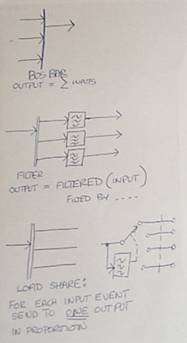 BUS BAR
OUTPUT = ∑ INPUTS
FILTER
OUTPUT = FILTERED (INPUT)
LOAD SHARE:
FOR EACH INPUT EVENT
SEND TO ONE OUTPUT
IN PROPORTION